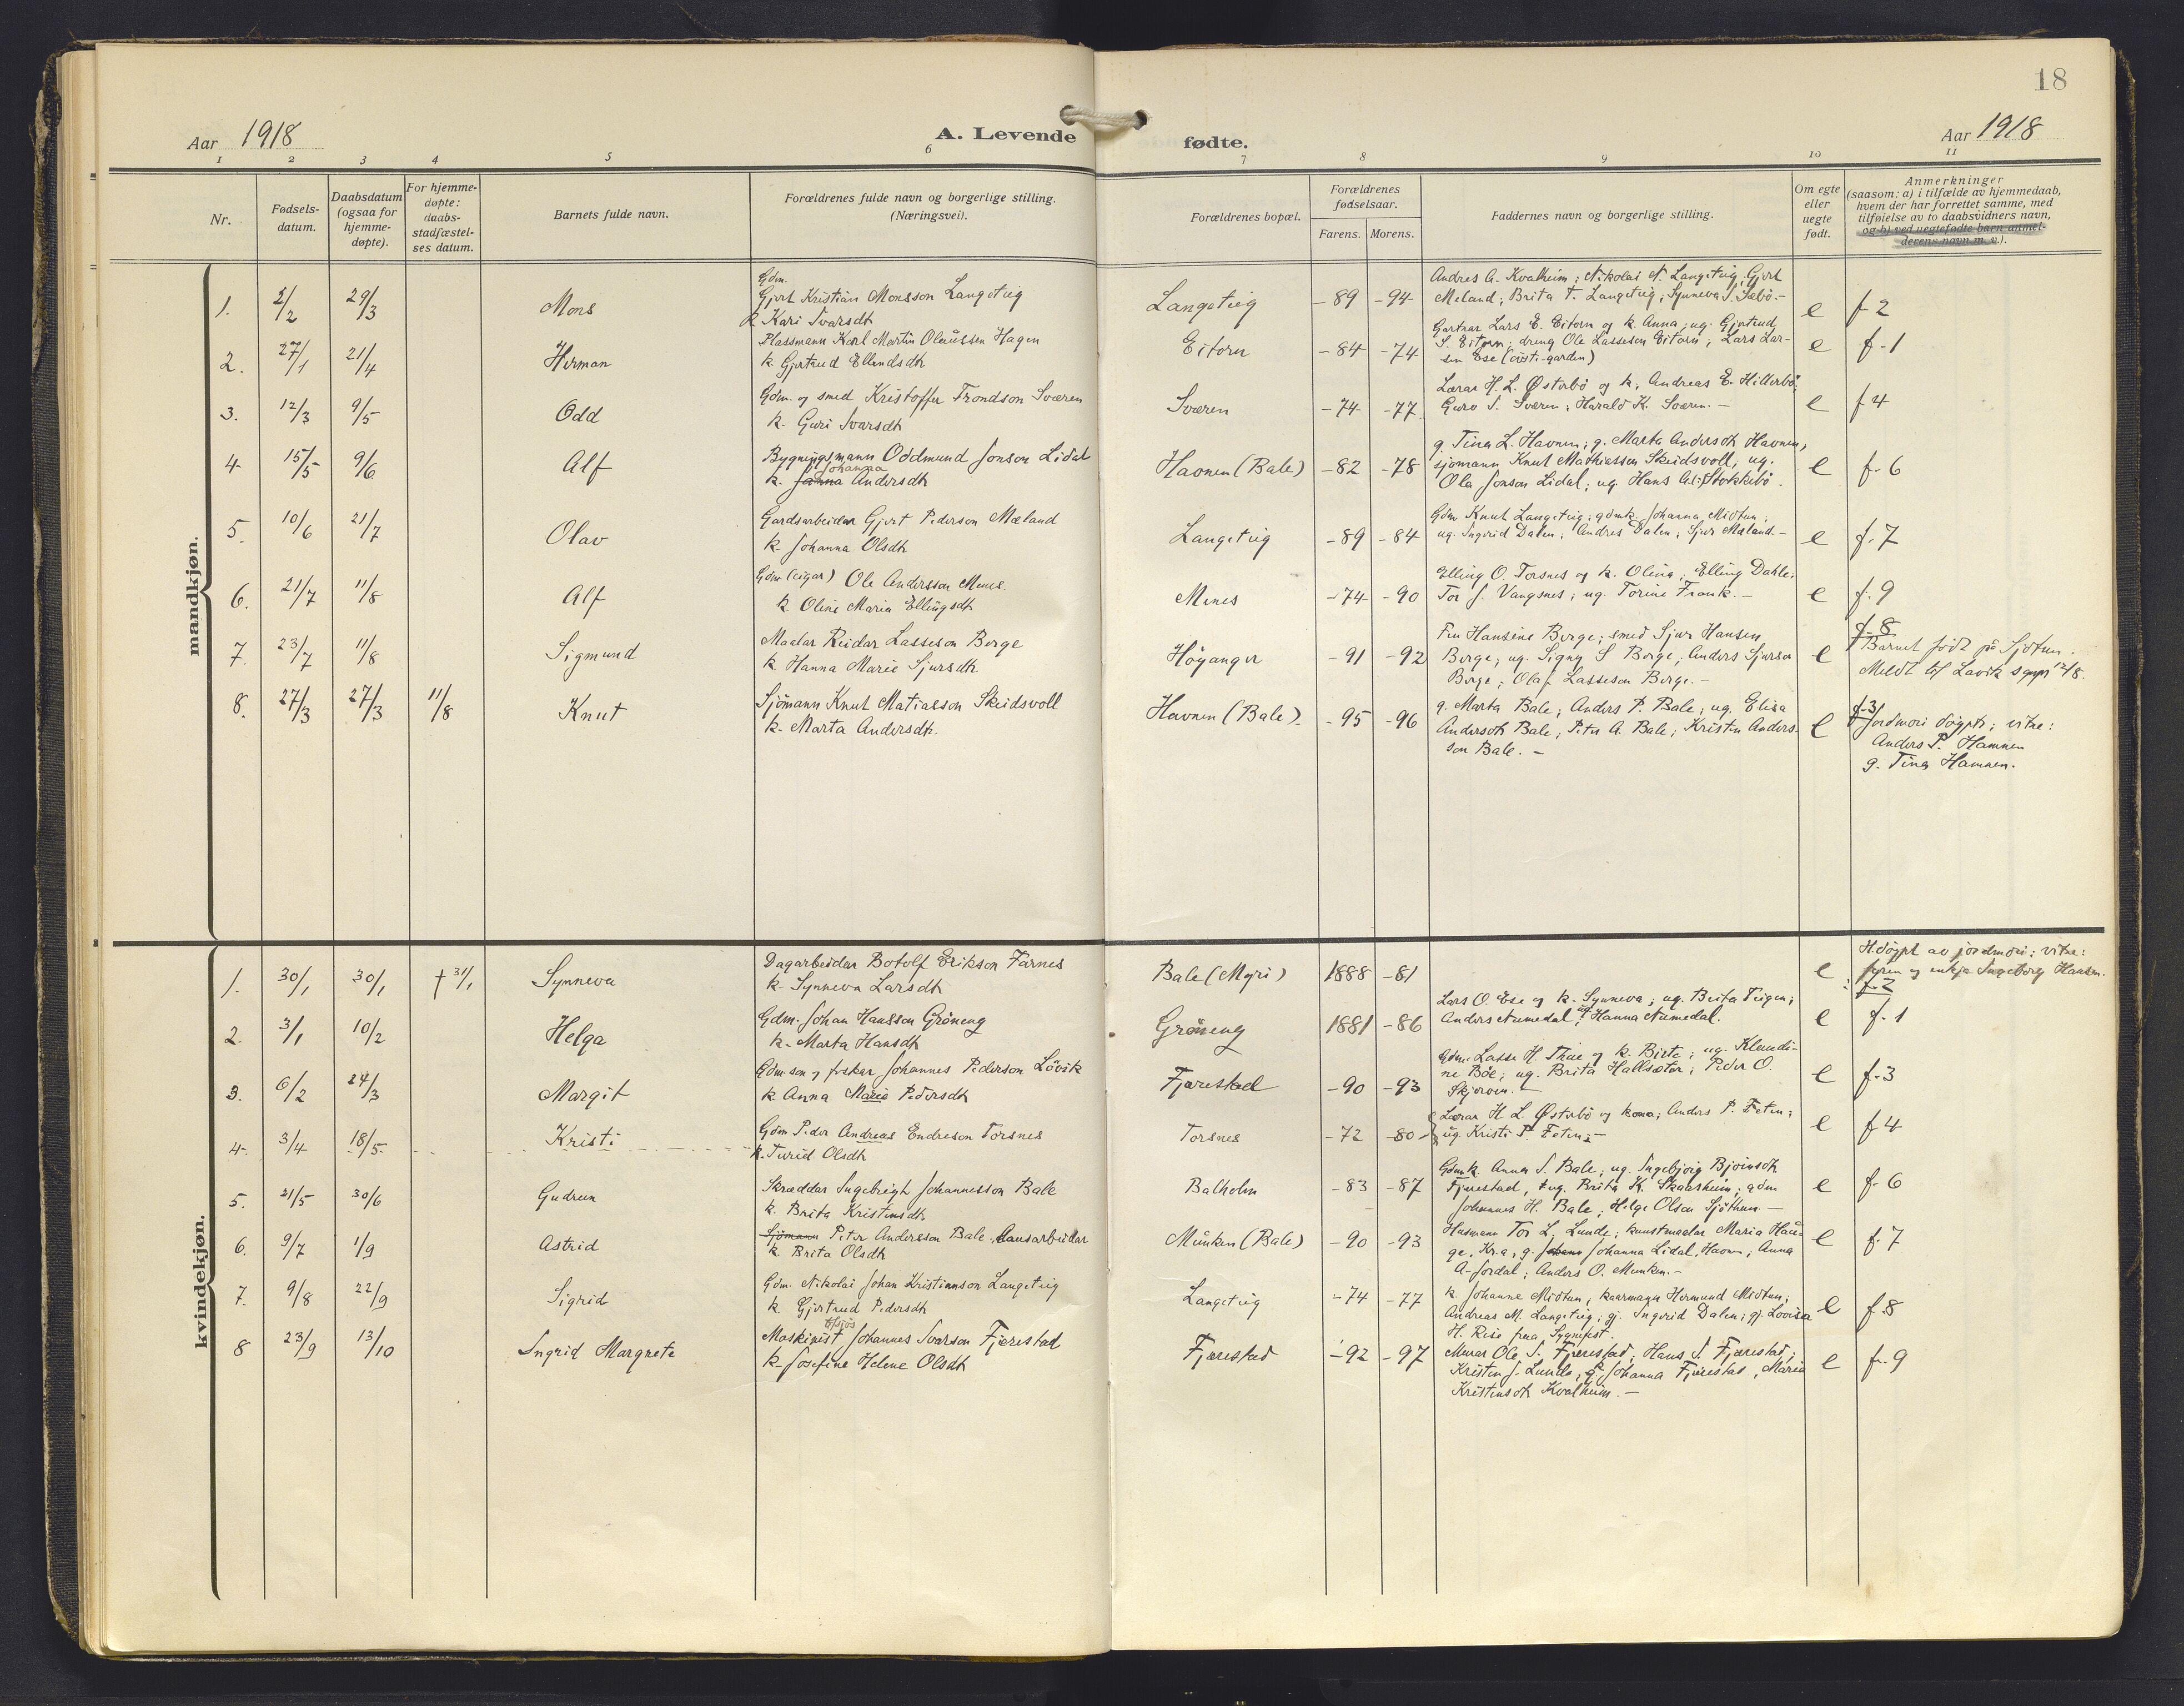 18
Aar 1918
A. Levende fødte.
Aar 1918
1 2 3 4 5 6 7 8 9 10 11
Nr.
Fødsels-
datum.
Daabsdatum
(ogsaa for
hjemme-
døpte).
For hjemme-
døpte:
daabs-
stadfæstel-
ses datum.
Barnets fulde navn.
Forældrenes fulde navn og borgerlige stilling.
(Næringsvei).
Forældrenes bopæl.
Forældrenes
fødselsaar.
Farens. Morens.
Faddernes navn og borgerlige stilling.
Om egte
eller
uegte
født.
Anmerkninger
(saasom: a) i tilfælde av hjemmedaab,
hvem der har forrettet samme, med
tilføielse av to daabsvidners navn,
og b) ved uegtefødte barn anmel-
derens navn m. v.).
mandkjøn.
1. 2/2 29/3 Mons
Gdm.
Gjert Kristian Monsson Langeteig
k Kari Ivarsdt
Langeteig -89 -94
Andres A. Kvalheim; Nikolai N. Langeteig, Gjert
Meland; Brita T. Langeteig; Synneva S. Sæbö.-
e f 2
2. 27/1 21/4 Herman
Plassmann Karl Martin Olaussen Hagen
k. Gjertrud Ellendsdt
Eitorn -84 -74
Gartnar Lars E. Eitorn og k. Anna; ug. Gjertrud
S. Eitorn; dreng Ole Lasseson Eitorn; Lars Lar-
sen Ese
e f-1
3. 12/3 9/5 Odd
Gdm. og smed Kristoffer Trondson Sværen
k. Guri Ivarsdt
Sværen -74 -77
Lærar H. L. Østerbö og k; Andreas E. Hillerbö;
Guro S. Sværen; Harald K. Sværen.-
e f 4
4 15/5 9/6 Alf
Bygningsmann Oddmund Jonson Lidal
Johanna
k. Janna Andersdt
Havnen (Bale) -82 -78
g. Tina L. Havnen; g. Marta Andersdt Havnen;
sjomann Knut Mathiasson Skeidsvoll; ug.
Ola Jonson Lidal; ug. Hans Al. Stokkebö.
e f- 6
5. 10/6 21/7 Olav
Gardsarbeidar Gjert Pederson Mæland
k. Johanna Olsdt
Langeteig -89 -84
Gdm Knut Langeteig; gdmk. Johanna Midtun;
ug. Ingerid Dalen; Andres Dalen; Sjur Mæland.-
e f. 7
6. 21/7 11/8 Alf
Gdm (eigar) Ole Andersson Menes
k. Oline Maria Ellingsdt
Menes -74 -90
Elling O. Torsnes og k. Olina; Elling Dahle;
Tor J. Vangsnes; ug. Torine Frank.-
e f. 9
7. 23/7 11/8 Sigmund
Maalar Reidar Lasseson Berge
k. Hanna Marie Sjursdt.
Höyanger -91 -92
Fru Hansine Berge; smed Sjur Hansen
Berge; ug. Signy S Berge; Anders Sjurson
Berge; Olaf Lasseson Berge.-
e f 8
Barnet födt på Sjötun.
Meldt til Lavik 12/8.
8. 27/3 27/3 11/8 Knut
Sjömann Knut Matiasson Skeidsvoll
k. Marta Andersdt.
Havnen (Bale) -95 -96
g. Marta Bale; Anders P. Bale; ug. Elisa
Andersdt Bale; Peter A. Bale; Kristen Anders-
son Bale.-
e f-3
Jordmori döypte; vitne:
Anders P. Hamnen
g. Tina Hamnen.
kvindekjøn.
1. 30/1 30/1 † 31/1 Synneva
Dagarbeidar Botolf Erikson Farnes
k. Synneva Larsdt
Bale (Myri) 1888 -81
e
H.döypt av jordmori; vitne:
faren og enkja Ingeborg Hansen.
f-2
2. 3/1 10/2 Helga
Gdm. Johan Hansson Gröneng
k. Marta Hansdt
Gröneng 1881 -86
Lars O. Ese og k. Synneva; ug. Brita Teigen;
Anders Numedal; ug. Hanna Numedal.
e f. 1
3. 6/2 24/3 Margit
Gdm.son og fiskar Johannes Pederson Lövik
k Anna Marie Pedersdt
Fjærestad -90 -93
Gdm. Lasse H. Thue og k. Birte; ug. Klaudi-
ne Böe; ug. Brita Hallsætar; Peder O.
Skjerven.
e f-3
4. 3/4 18/5 Kristi
Gdm Peder Andreas Endreson Torsnes
k. Turid Olsdt
Torsnes -72 -80
Lærar H L. Østerbö og kona; Anders P. Feten;
ug. Kristi P. Feten;-
e f 4
5. 21/5 30/6 Gudrun
Skræddar Ingebrigt Johannesson Bale
k. Brita Kristensdt
Balholm -83 -87
Gdmk. Anna S. Bale; ug. Ingebjörg Björnsdt
Fjærestad, ug. Brita K. Skaasheim; gdm
Johannes H. Bale; Helge Olson Sjöthun.-
e f- 6
6. 9/7 1/9 Astrid
Sjömann Peter Andersson Bale, Hausarbeidar
k Brita Olsdt
Munken (Bale) -90 -93
Husmann Tor L. Lunde; kunstmaalar Maria Hau-
ge, Kr.a; g. Johanna Lidal, Havnen; Anna
A. Jordal; Anders O. Munken.-
e f. 7
7. 9/8 22/9 Sigrid
Gdm. Nikolai Johan Kristiansson Langeteig
k. Gjertrud Pedersdt
Langeteig -74 -77
k. Johanne Midtun, kaarmann Hermund Midtun;
Andreas M. Langeteig; gj. Ingerid Dalen; gj. Lovisa
H. Risö fraa Sygnefest.
e f.8
8 23/9 13/10 Ingrid Margrete
tilsjøs
Maskinist Johannes Ivarson Fjærestad
k. Josefine Helene Olsdt
Fjærestad -92 -97
Murar Ole S. Fjærestad; Hans S. Fjærestad;
Kristen J. Lunde; g. Johanna Fjærestad, Maria
Kristensdt Kvalheim.-
e f. 9